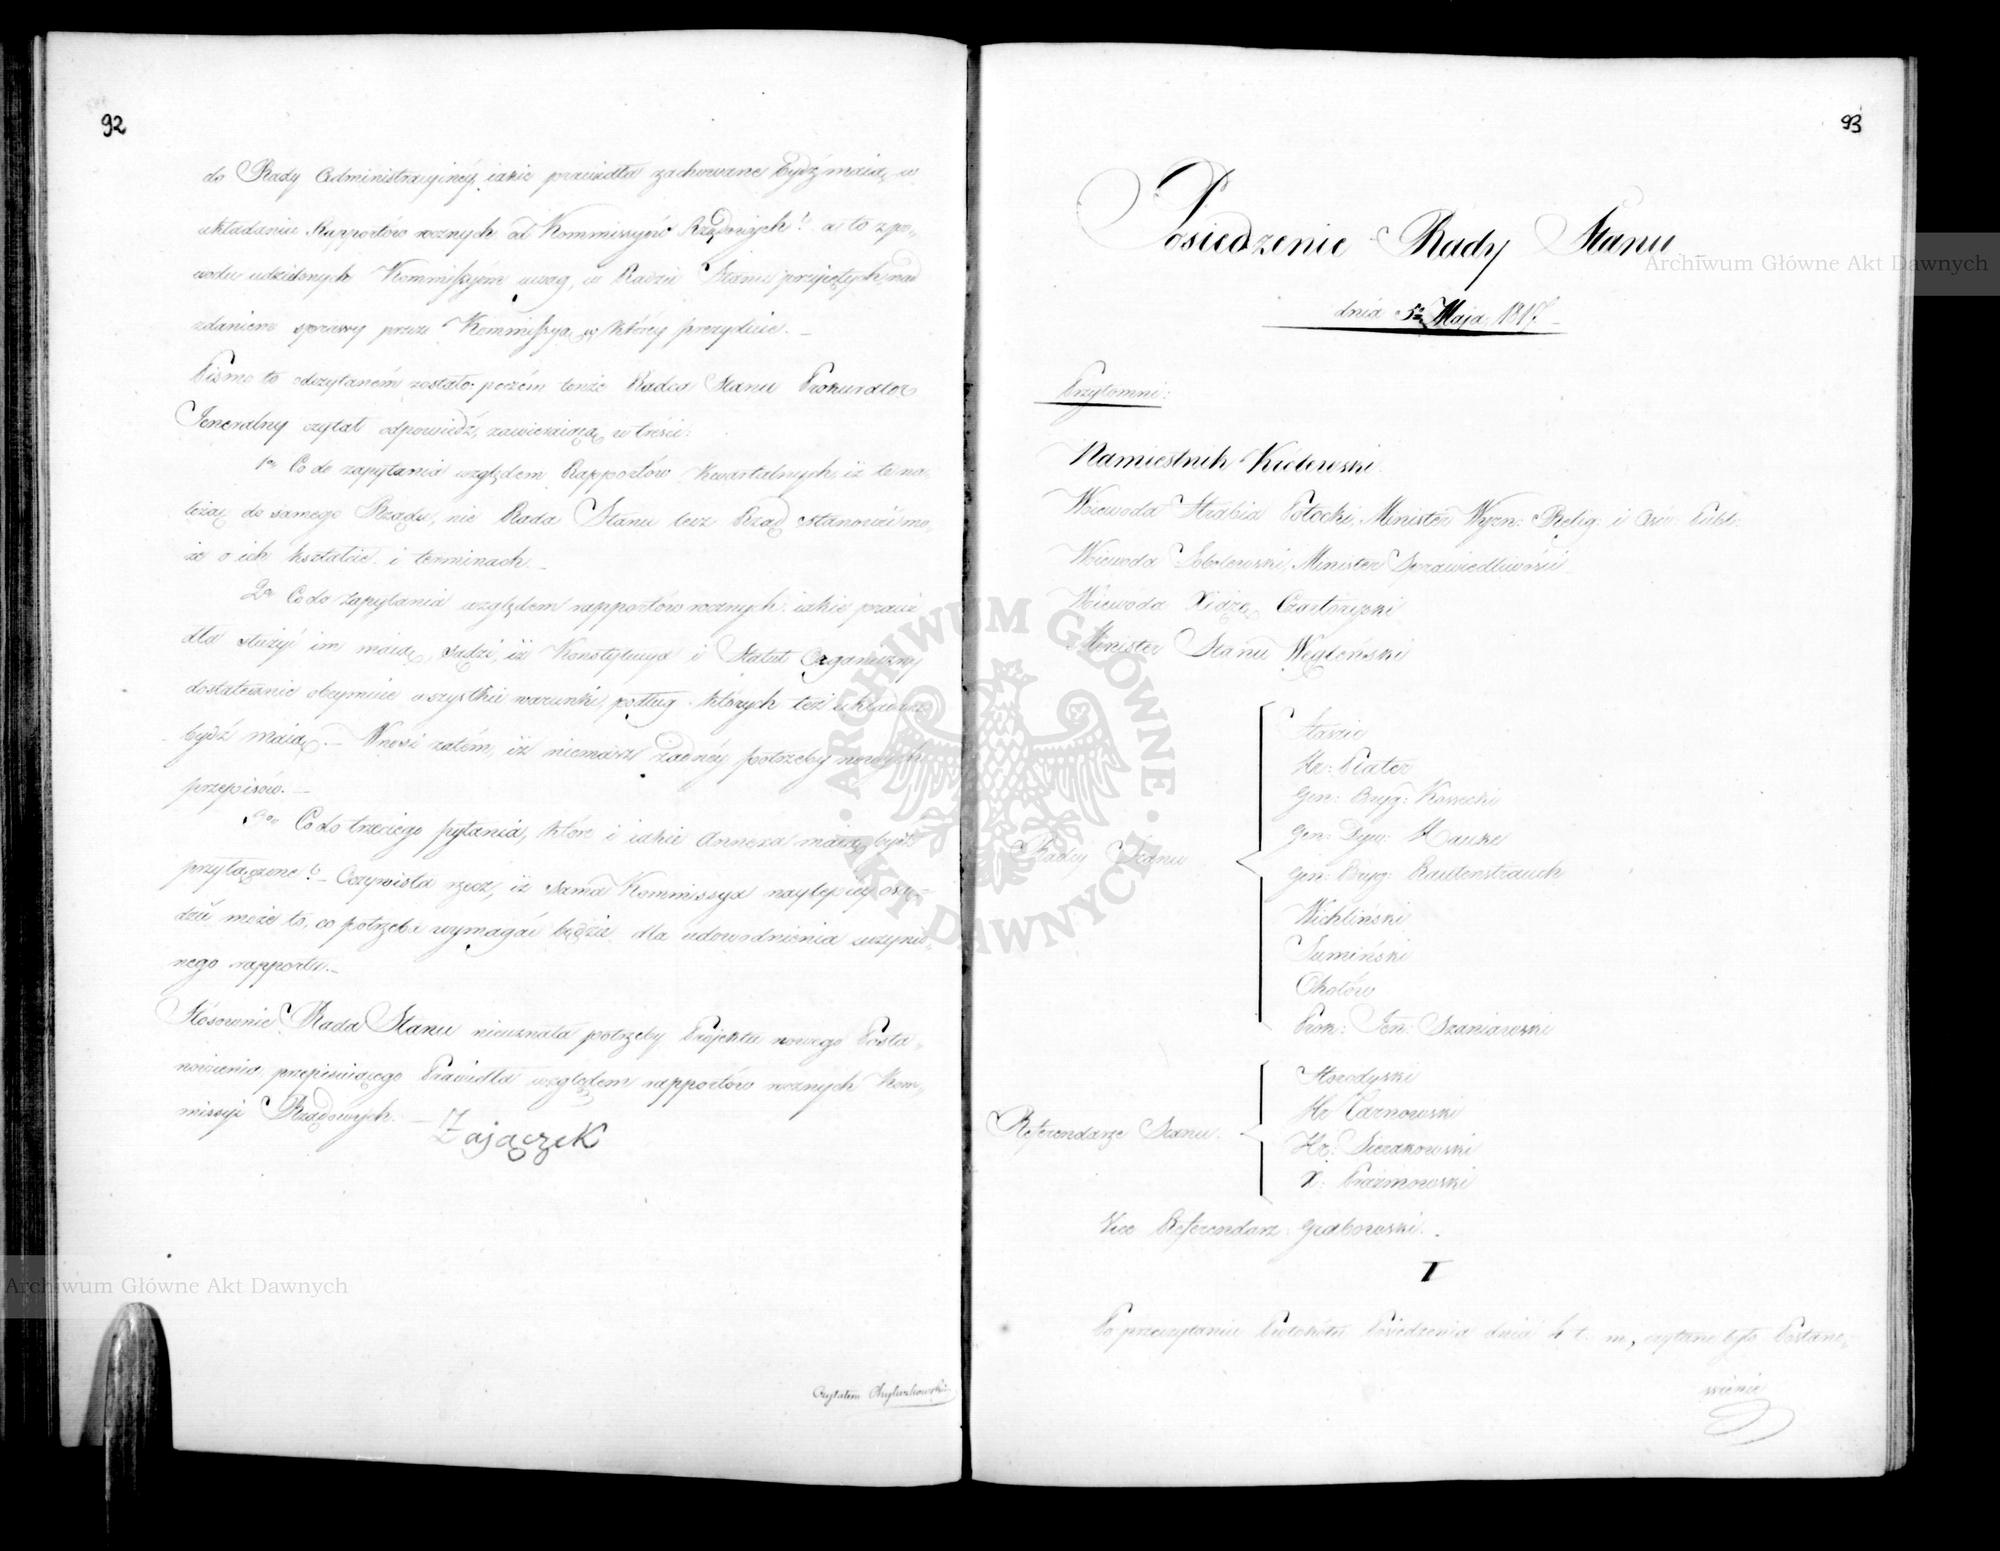 92
do Rady Administracyinéy, iakie prawidła zachowane bydź maią, w
układaniu Rapportów rocznych od Kommissyów Rządowych? a to z po-
wodu udzielonych Kommissyom uwag, w Radzie Stanu przyiętych, nad
zdaniem sprawy przez Kommissyą, w któréy prezyduie. —
Pismo to odczytaném zostało; poczém tenże Radca Stanu Prokurator
Jeneralny czytał odpowiedź, zawieraiącą w treści:
1o Co do zapytania względem Rapportów kwartalnych, iż te na-
leżą do samego Rządu, nie Rada Stanu lecz Rząd stanowić mo-
że o ich kształcie i terminach. —
2o Co do zapytania względem rapportów rocznych, iakie prawi-
dła służyć im maią, sądzi, iż Konstytucya i Statut Organiczny
dostatecznie obeymuie wszystkie warunki, podług których też układane
bydź maią. — Wnosi zatém, iż niemasz żadnéy potrzeby nowych
przepisów. —
3o Co do trzeciego pytania, które i iakie Annexa maią bydź
przyłączone? — Oczywista rzecz, iż sama Kommissya naylepiéy osą-
dzić może to, co potrzeba wymagać będzie dla udowodnienia uczynio-
nego rapportu. —
Stósownie Rada Stanu nieuznała potrzeby Projektu nowego Posta-
nowienia, przepisuiącego Prawidła względem rapportów rocznych Kom-
missyi Rządowych. —
Zajączek
Czytałem
93
Posiedzenie Rady Stanu
dnia 5o Maja 1817 —
Przytomni:
Namiestnik Królewski.
Woiewoda Hrabia Potocki, Minister Wyzn: Relig: i Ośw: Publ:
Woiewoda Sobolewski, Minister Sprawiedliwości —
Woiewoda Xiążę Czartoryski
Minister Stanu Węgleński
Radcy Stanu
Staszic
Hr: Plater
Gen: Bryg: Kossecki
Gen: Dyw: Hauke
Gen: Bryg: Rautenstrauch
Wichliński
Sumiński
Okołów
Prok: Jen: Szaniawski
Referendarze Stanu.
Horodyski
Hr Tarnowski
Hr: Sierakowski
X: Prażmowski
Vice Referendarz Grabowski.
I
Po przeczytaniu Protokółu Posiedzenia dnia 4 t. m, czytane było Postano-
wienie
Archiwum Główne Akt Dawnych
Archiwum Główne Akt Dawnych
ARCHIWUM GŁÓWNE
AKT DAWNYCH